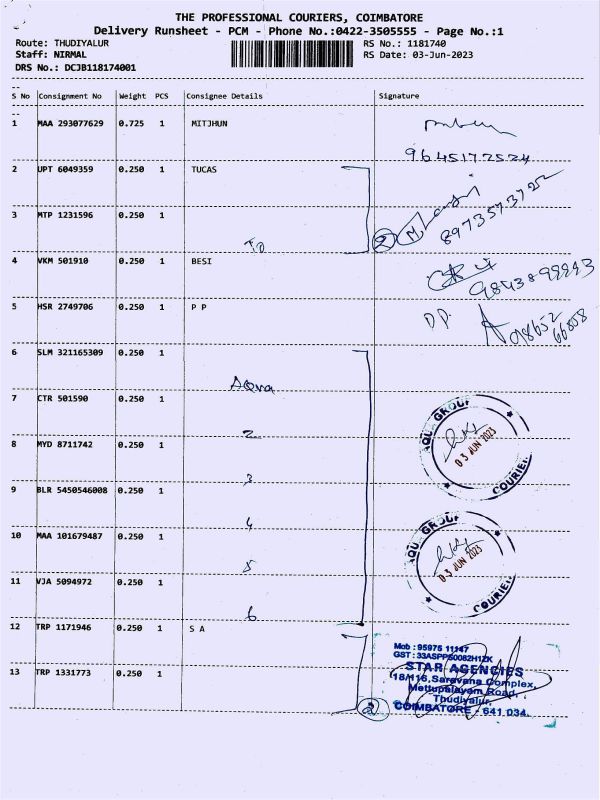 THE PROFESSIONAL COURIERS, COIMBATORE
Delivery Runsheet - PCM - Phone No.:0422-3505555 - Page No.:1
Route: THUDIYALUR RS No.: 1181740
Staff: NIRMAL RS Date: 03-Jun-2023
DRS No.: DCJB118174001
S No Consignment No Weight PCS Consignee Details Signature
1 MAA 293077629 0.725 1 MITJHUN
9645172524
2 UPT 6049359 0.250 1 TUCAS
3 MTP 1231596 0.250 1
To 2 M 8973573722
4 VKM 501910 0.250 1 BESI
9843899993
5 HSR 2749706 0.250 1 P P D.P. 98652
66858
6 SLM 321165309 0.250 1
Aqua
7 CTR 501590 0.250 1
2
AQUA GROUP
03 JUN 2023
COURIER
8 MYD 8711742 0.250 1
3
9 BLR 5450546008 0.250 1
4
10 MAA 101679487 0.250 1
5
AQUA GROUP
03 JUN 2023
COURIER
11 VJA 5094972 0.250 1
6
12 TRP 1171946 0.250 1 S A
Mob : 95975 11147
GST : 33ASPPS0082H1ZK
STAR AGENCIES
13 TRP 1331773 0.250 1
18/116, Saravana Complex,
Mettupalayam Road,
Thudiyalur,
2 COIMBATORE - 641 034.